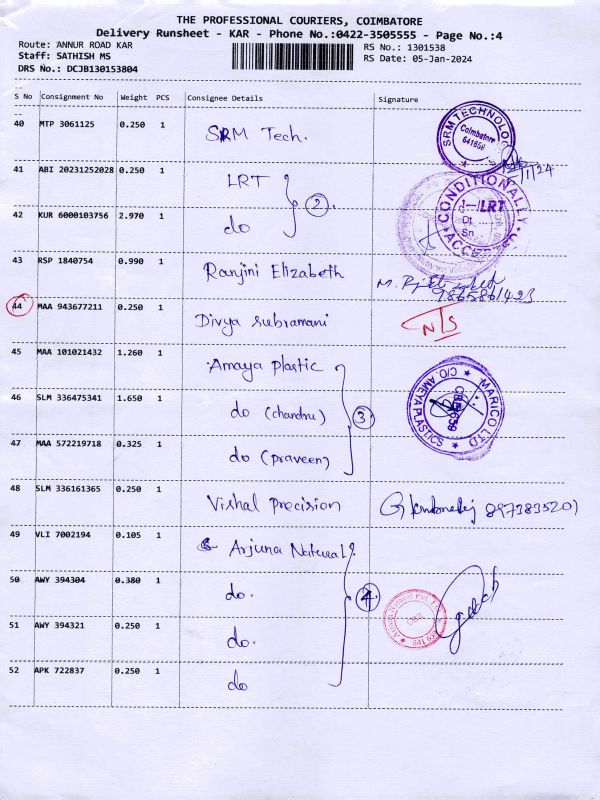 THE PROFESSIONAL COURIERS, COIMBATORE
Delivery Runsheet - KAR - Phone No.:0422-3505555 - Page No.:4
Route: ANNUR ROAD KAR
RS No.: 1301538
Staff: SATHISH MS
RS Date: 05-Jan-2024
DRS No.: DCJB130153804
S No Consignment No Weight PCS Consignee Details Signature
40 MTP 3061125 0.250 1 SRM Tech.
SRM TECHNOLO
Coimbatore
641659
/1/24
41 ABI 20231252028 0.250 1 LRT
2
CONDITIONALLY
LRT
Dt
Sn
ACCEPTED
42 KUR 6000103756 2.970 1 do
43 RSP 1840754 0.990 1 Ranjini Elizabeth
9865861423
44 MAA 943677211 0.250 1 Divya Subramani
N/S
45 MAA 101021432 1.260 1 Amaya plastic
46 SLM 336475341 1.650 1 do (chandru)
3
MARICO LTD
C/O. AMEYA PLASTICS
47 MAA 572219718 0.325 1 do (praveen)
48 SLM 336161365 0.250 1 Vishal Precision
8973835201
49 VLI 7002194 0.105 1 Arjuna Natural
50 AWY 394304 0.380 1 do.
4
51 AWY 394321 0.250 1 do.
52 APK 722837 0.250 1 do